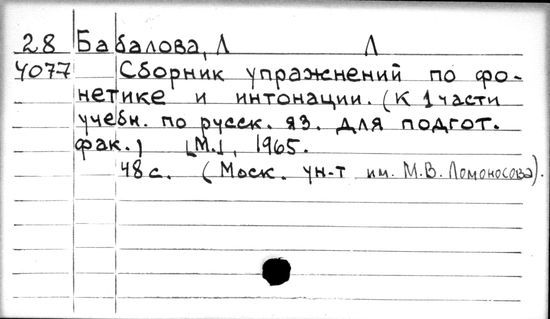 28 Бабалова, Л Л
4077 Сборник упражнений по фо-
нетике и интонации. (К 1 части
учебн. по русск. яз. для подгот.
фак.) [М.], 1965.
48 с. (Моск. ун-т им. М.В. Ломоносова).